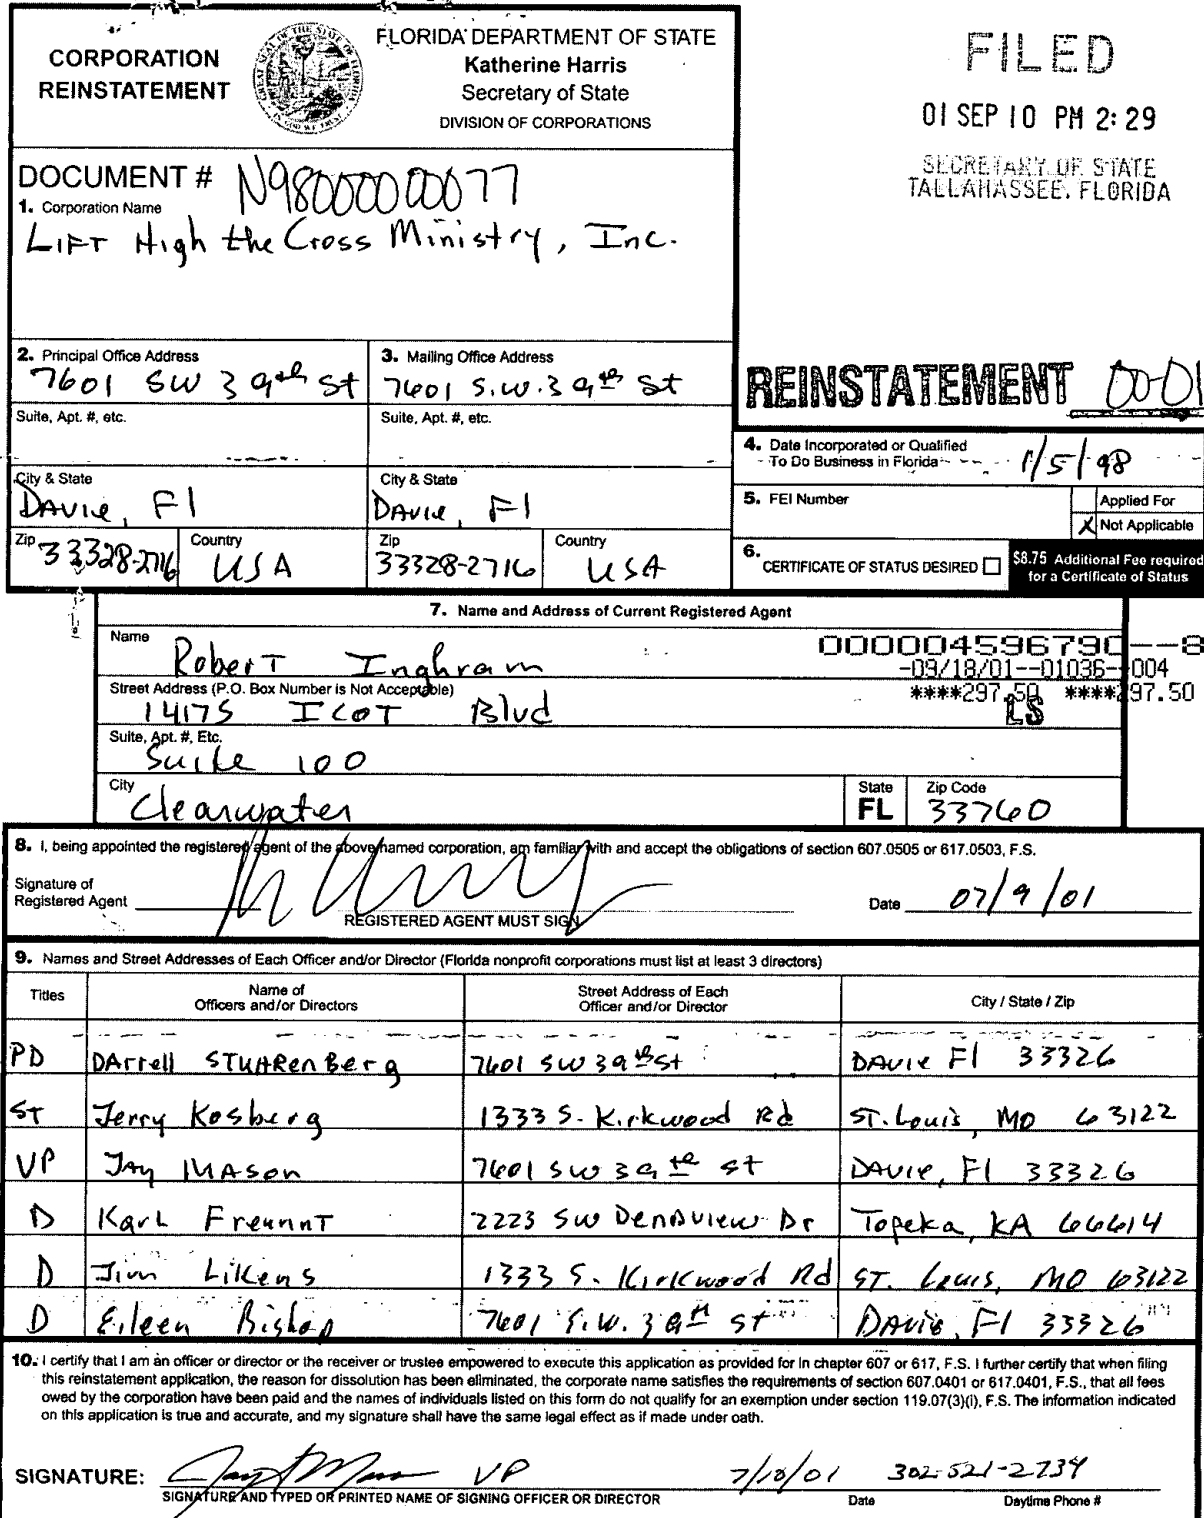 CORPORATION
REINSTATEMENT
FLORIDA DEPARTMENT OF STATE
Katherine Harris
Secretary of State
DIVISION OF CORPORATIONS
FILED
01 SEP 10 PM 2:29
SECRETARY OF STATE
TALLAHASSEE, FLORIDA
DOCUMENT # N98000000077
1. Corporation Name
LIFT High the Cross Ministry, Inc.
2. Principal Office Address
7601 SW 39th St
3. Mailing Office Address
7601 S.W. 39th St
Suite, Apt. #, etc.
Suite, Apt. #, etc.
City & State
DAVIE, Fl
City & State
DAVIE, Fl
Zip 33328-2716
Country
USA
Zip
33328-2716
Country
USA
REINSTATEMENT 00-01
4. Date Incorporated or Qualified
To Do Business in Florida 1/5/98
5. FEI Number
Applied For
X Not Applicable
6. CERTIFICATE OF STATUS DESIRED
$8.75 Additional Fee required
for a Certificate of Status
7. Name and Address of Current Registered Agent
Name
Robert Inghram
000004596790--8
-09/18/01--01036--004
****297.50 ****297.50
LS
Street Address (P.O. Box Number is Not Acceptable)
14175 ICOT Blvd
Suite, Apt. #, Etc.
Suite 100
City
Clearwater
State
FL
Zip Code
33760
8. I, being appointed the registered agent of the above named corporation, am familiar with and accept the obligations of section 607.0505 or 617.0503, F.S.
Signature of
Registered Agent
REGISTERED AGENT MUST SIGN
Date 07/9/01
9. Names and Street Addresses of Each Officer and/or Director (Florida nonprofit corporations must list at least 3 directors)
Titles
Name of
Officers and/or Directors
Street Address of Each
Officer and/or Director
City / State / Zip
PD DArrell STUHRENBerg 7601 SW 39th St DAVIE Fl 33326
ST Jerry Kosberg 1333 S. Kirkwood Rd ST. Louis, MO 63122
VP Jay MASON 7601 SW 39th St DAVIE, Fl 33326
D Karl 2223 SW Dr Topeka, KA 66614
D Jim Likens 1333 S. Kirkwood Rd ST. Louis, MO 63122
D Eileen Bishop 7601 S.W. 39th St DAVIE, Fl 33326
10. I certify that I am an officer or director or the receiver or trustee empowered to execute this application as provided for in chapter 607 or 617, F.S. I further certify that when filing
this reinstatement application, the reason for dissolution has been eliminated, the corporate name satisfies the requirements of section 607.0401 or 617.0401, F.S., that all fees
owed by the corporation have been paid and the names of individuals listed on this form do not qualify for an exemption under section 119.07(3)(i), F.S. The information indicated
on this application is true and accurate, and my signature shall have the same legal effect as if made under oath.
SIGNATURE: VP 7/10/01 302-521-2734
SIGNATURE AND TYPED OR PRINTED NAME OF SIGNING OFFICER OR DIRECTOR
Date
Daytime Phone #